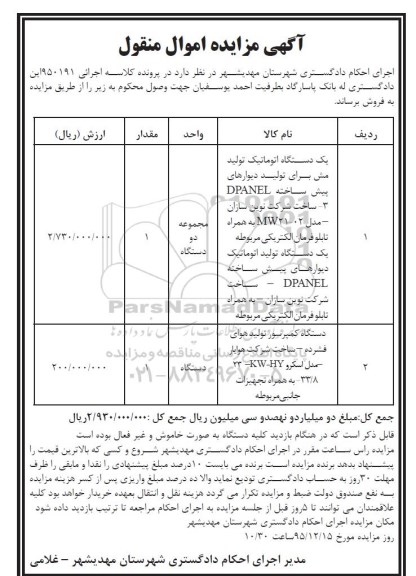 آگهی مزایده اموال منقول
اجرای احکام دادگستری شهرستان مهدیشهر در نظر دارد در پرونده کلاسه اجرائی ۹۵۰۱۹۱این
دادگستری له بانک پاسارگاد بطرفیت احمد یوسفیان جهت وصول محکوم به زیر را از طریق مزایده
به فروش برساند.
ردیف نام کالا واحد مقدار ارزش (ریال)
یک دستگاه اتوماتیک تولید
مش برای تولید دیوارهای
پیش ساخته DPANEL
۳- ساخت شرکت نوین سازان
–مدل MW۲۱۰۲ به همراه
تابلو فرمان الکتریکی مربوطه
یک دستگاه تولید اتوماتیک
دیوارهای پیش ساخته
DPANEL – ساخت
شرکت نوین سازان – به همراه
تابلو فرمان الکتریکی مربوطه
۱ مجموعه دو دستگاه ۱ ۲/۷۳۰/۰۰۰/۰۰۰
دستگاه کمپرسور تولید هوای
فشرده – ساخت شرکت هوایار
–مدل اسکرو KW-HY– ۲۳
۳۳/۸- به همراه تجهیزات
جانبی مربوطه
۲ دستگاه ۱ ۲۰۰/۰۰۰/۰۰۰
ParsNamadData
پایگاه اطلاع رسانی مناقصه و مزایده
۰۲۱-۸۸۳۴۹۶۷۰-۵
جمع کل:مبلغ دو میلیاردو نهصدو سی میلیون ریال جمع کل :۲/۹۳۰/۰۰۰/۰۰۰ریال
قابل ذکر است که در هنگام بازدید کلیه دستگاه به صورت خاموش و غیر فعال بوده است
مزایده راس ساعت مقرر در اجرای احکام دادگستری مهدیشهر شروع و کسی که بالاترین قیمت را
پیشنهاد بدهد برنده مزایده است برنده می بایست ۱۰درصد مبلغ پیشنهادی را نقدا و مابقی را ظرف
مهلت ۳۰روز به حساب دادگستری تودیع نماید والا ده درصد مبلغ واریزی پس از کسر هزینه مزایده
به نفع صندوق دولت ضبط و مزایده تکرار می گردد هزینه نقل و انتقال بعهده خریدار خواهد بود کلیه
علاقمندان می توانند تا ۵روز قبل از جلسه مزایده به اجرای احکام مراجعه تا ترتیب بازدید داده شود
مکان مزایده اجرای احکام دادگستری شهرستان مهدیشهر
روز مزایده مورخ ۹۵/۱۲/۱۵ساعت ۱۰/۳۰
مدیر اجرای احکام دادگستری شهرستان مهدیشهر – غلامی